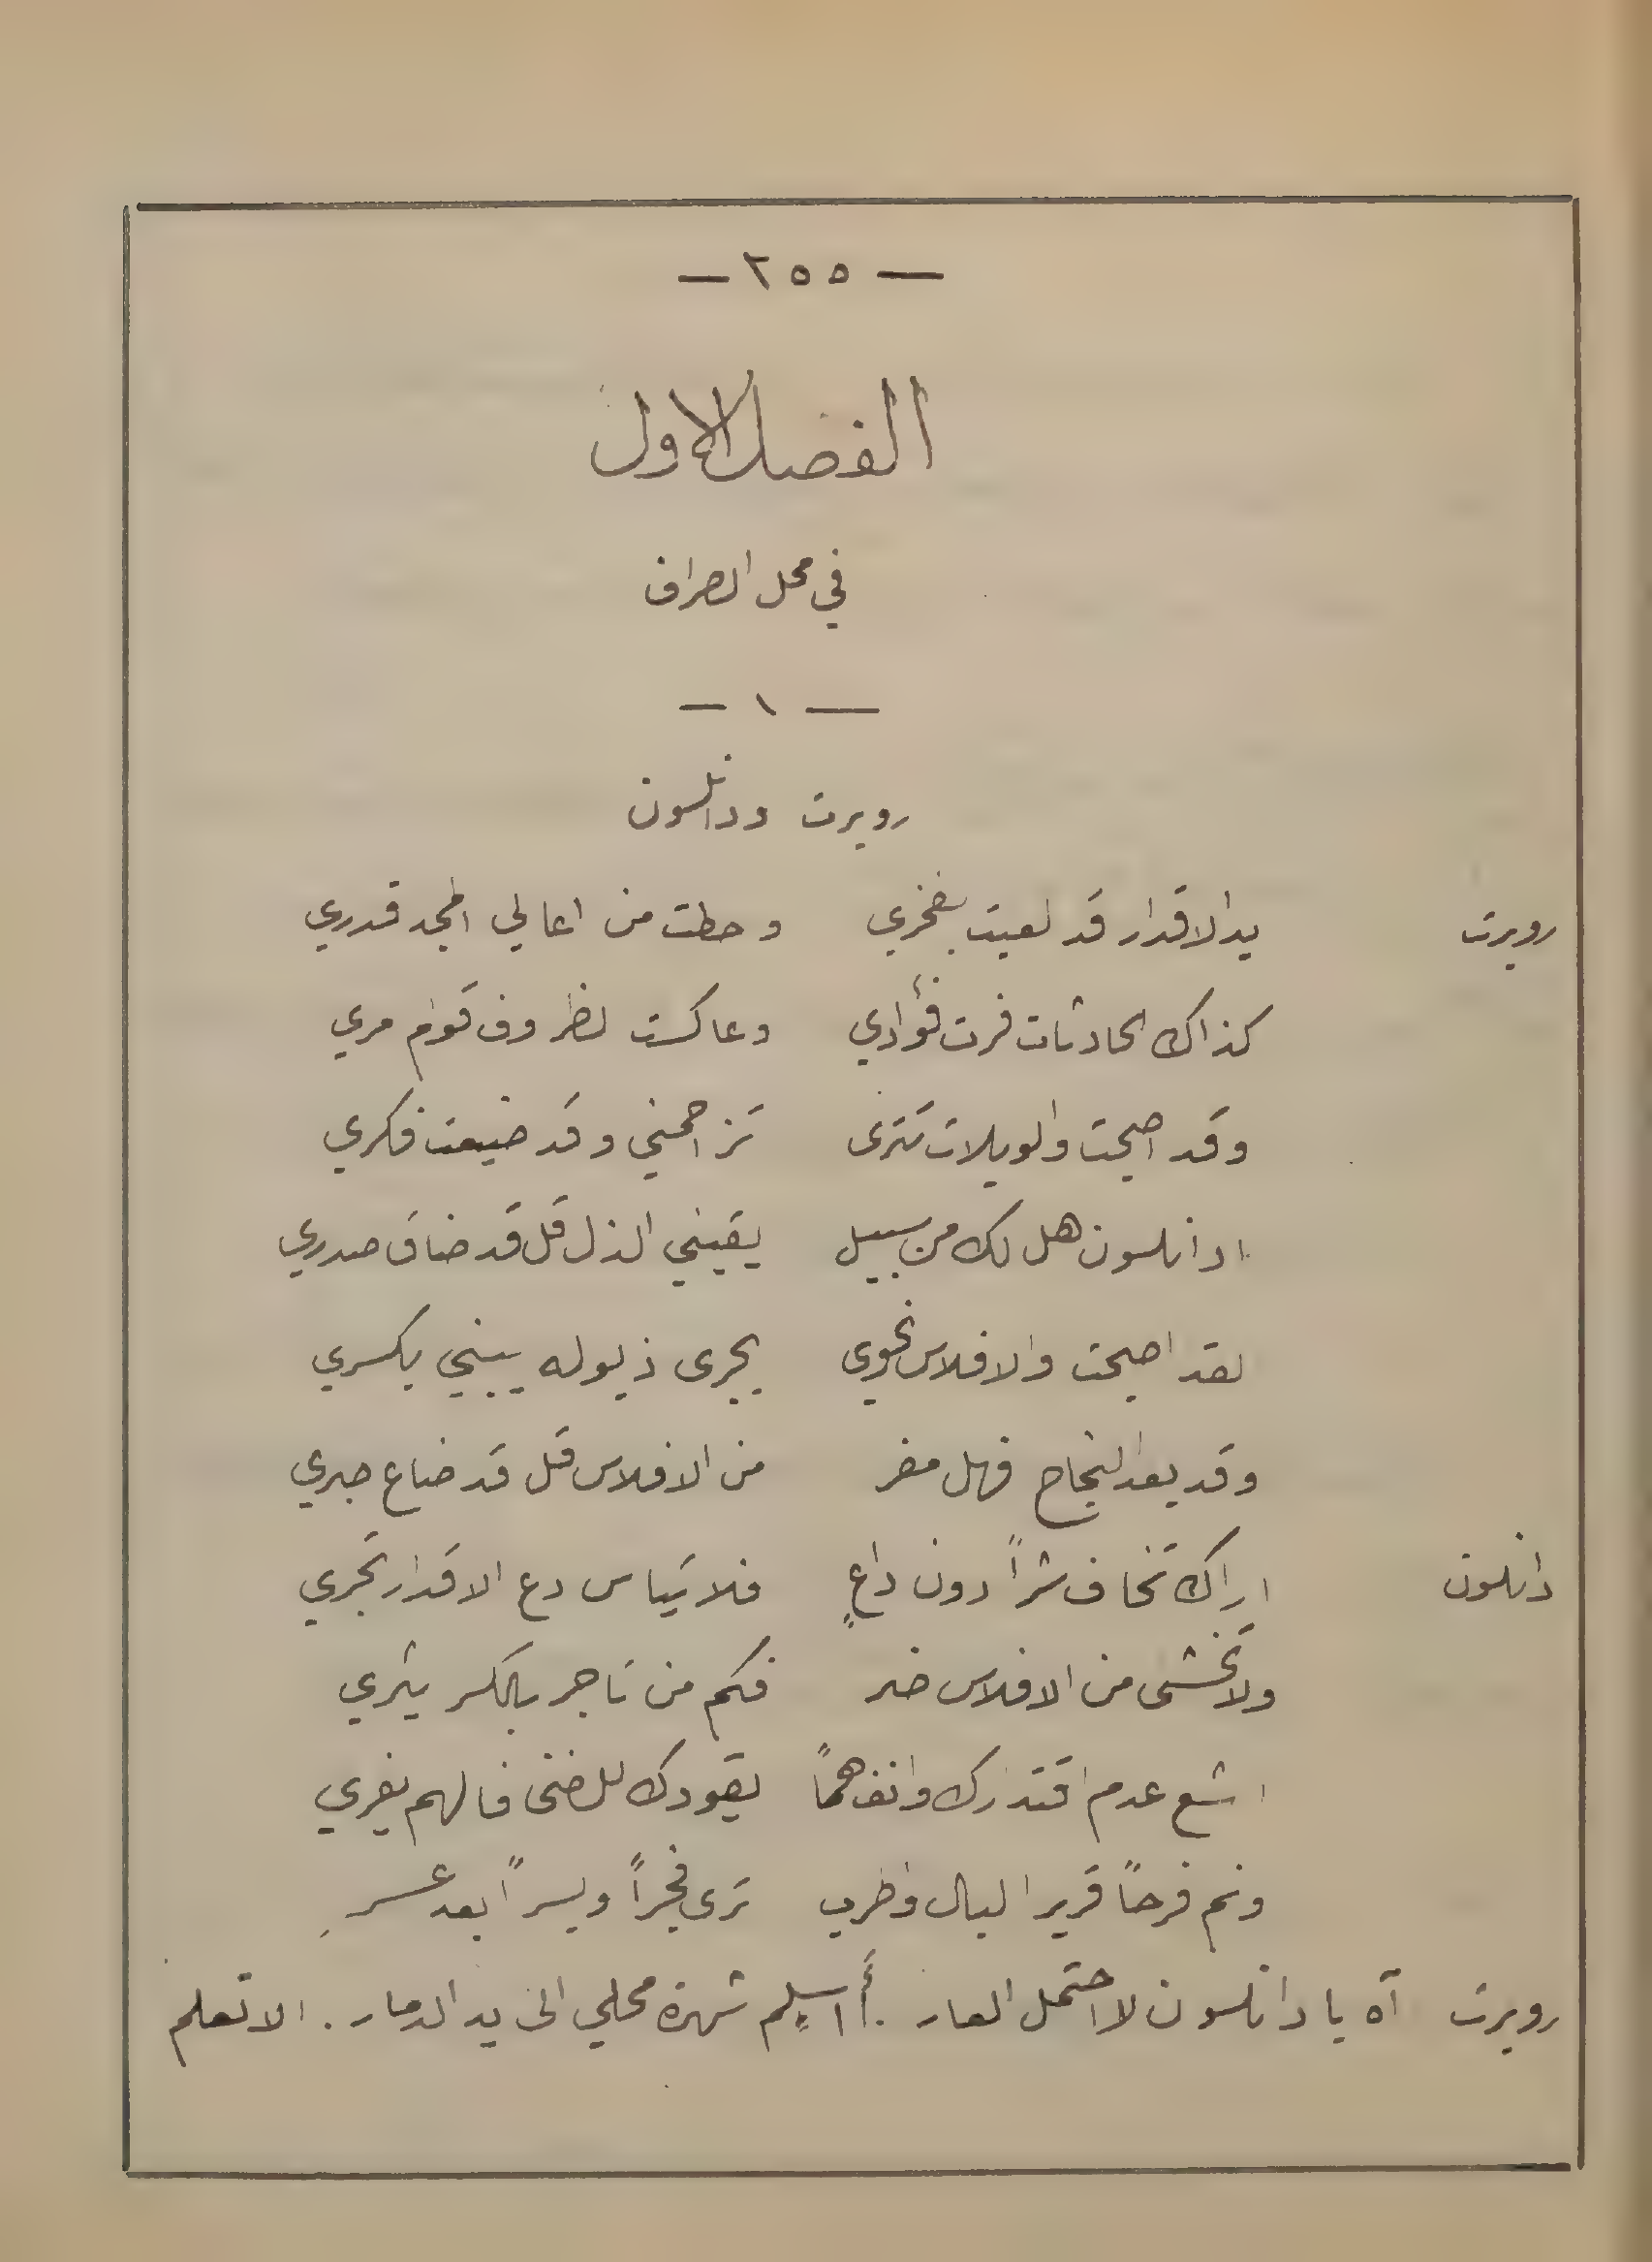 — ٢٥٥ —
الفصل الاول
في محل الصراف
— ١ —
روبرت ودانلسون
روبرت يد الاقدار قد لعبت بفخري وحطت من اعالي المجد قدري
كذاك الحادثات فرت فؤادي وعاكست لظروف قوام مري
وقد اصبحت والويلات تترى تزاحمني وقد ضيعت فكري
ادانلسون هل لك من سبيل يقيني الذل قل قد ضاق صدري
لقد اصبحت والافلاس نحوي يجرى ذيوله يبني بكسري
وقد بعد النجاح فهل مفر من الافلاس قل قد ضاع جبري
دانلسون اراك تخاف شراً دون داعٍ فلا تيأس دع الاقدار تجري
ولا تخشى من الافلاس ضر فكم من تاجر بالكسر يثري
اشع عدم اقتدارك وانف هماً يقودك للضنى فالهم يفري
ونم فرحاً قرير البال واطرب ترى فجراً ويسراً بعد عسرِ
روبرت آه يا دانلسون لا احتمل العار . أاسلِم شهرة محلي الى يد الدمار . الا تعلم